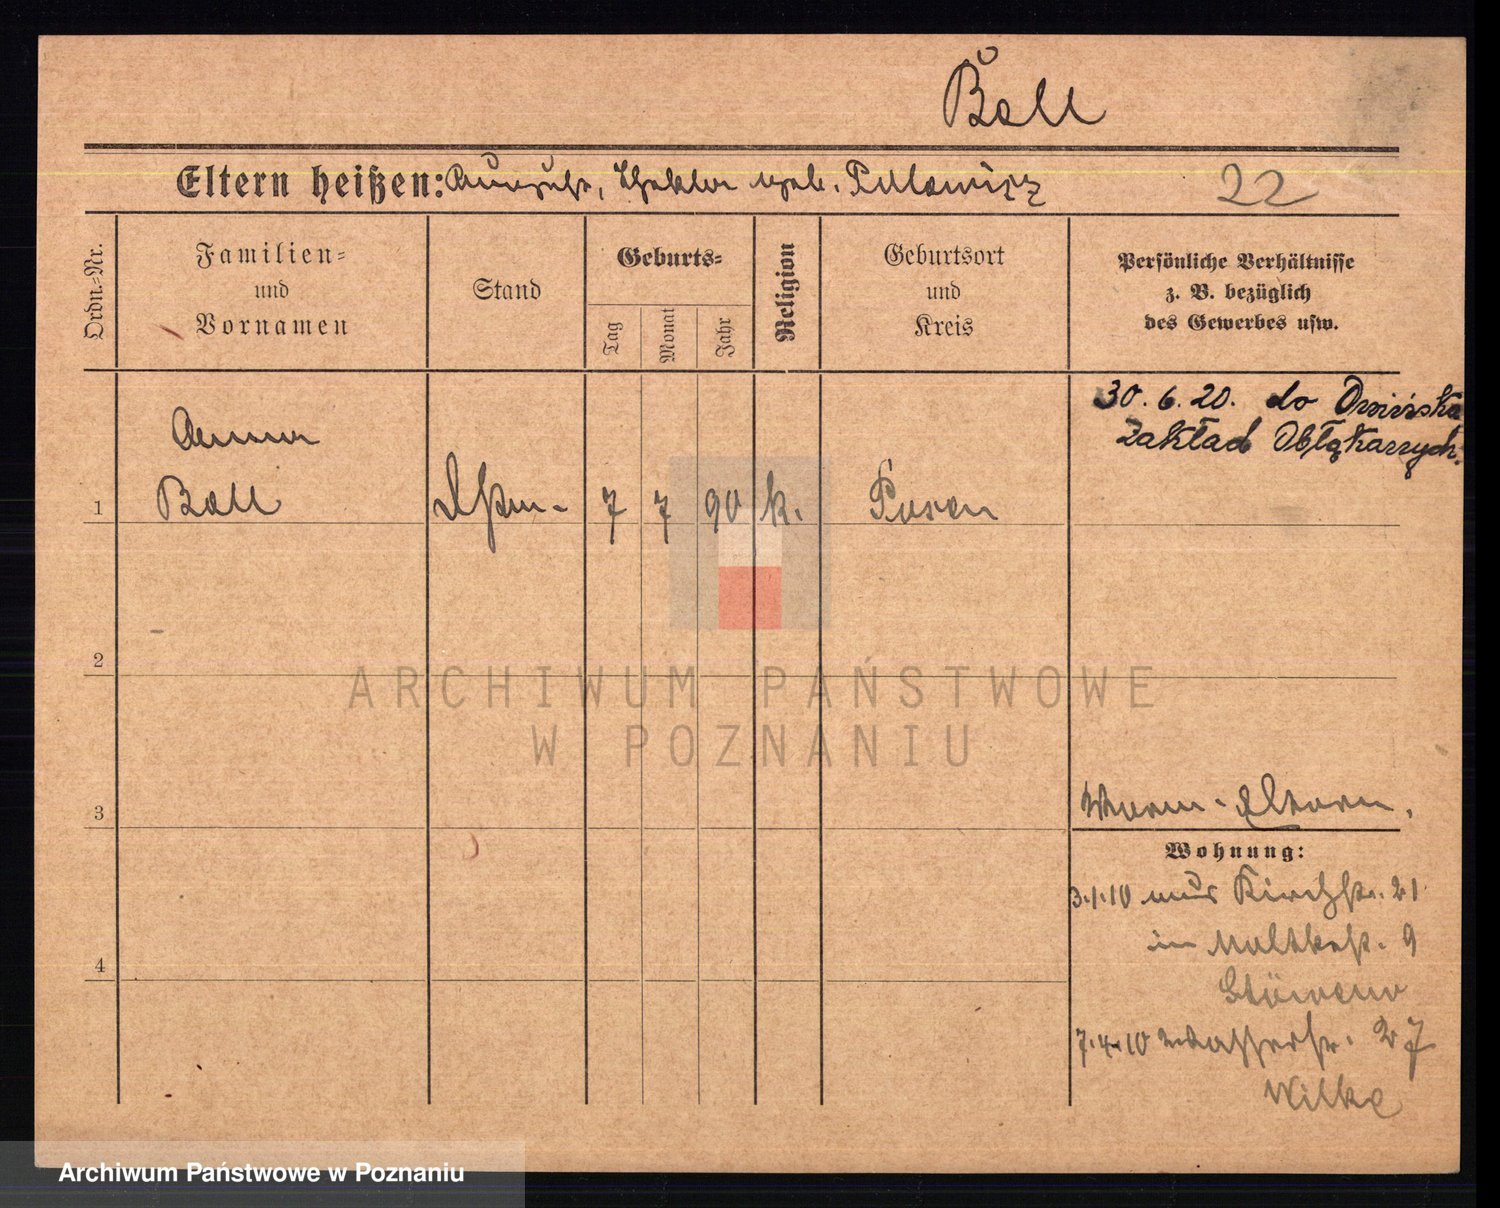 Ball
Eltern heißen: August, Thekla geb.
22
Ordn.-Nr.
Familien-
und
Vornamen
Stand
Geburts-
Tag
Monat
Jahr
Religion
Geburtsort
und
Kreis
Persönliche Verhältnisse
z. B. bezüglich
des Gewerbes usw.
30. 6. 20. do Owińsk
zakład Obłąkanych.
Anna
1 Ball 7 7 90 k. Posen
2
3
Eltern.
Wohnung:
3.1.10 aus Kirchstr. 21
in Moltkestr. 9
7.4.10 Wasserstr. 27
Wilke
4
ARCHIWUM PAŃSTWOWE
W POZNANIU
Archiwum Państwowe w Poznaniu